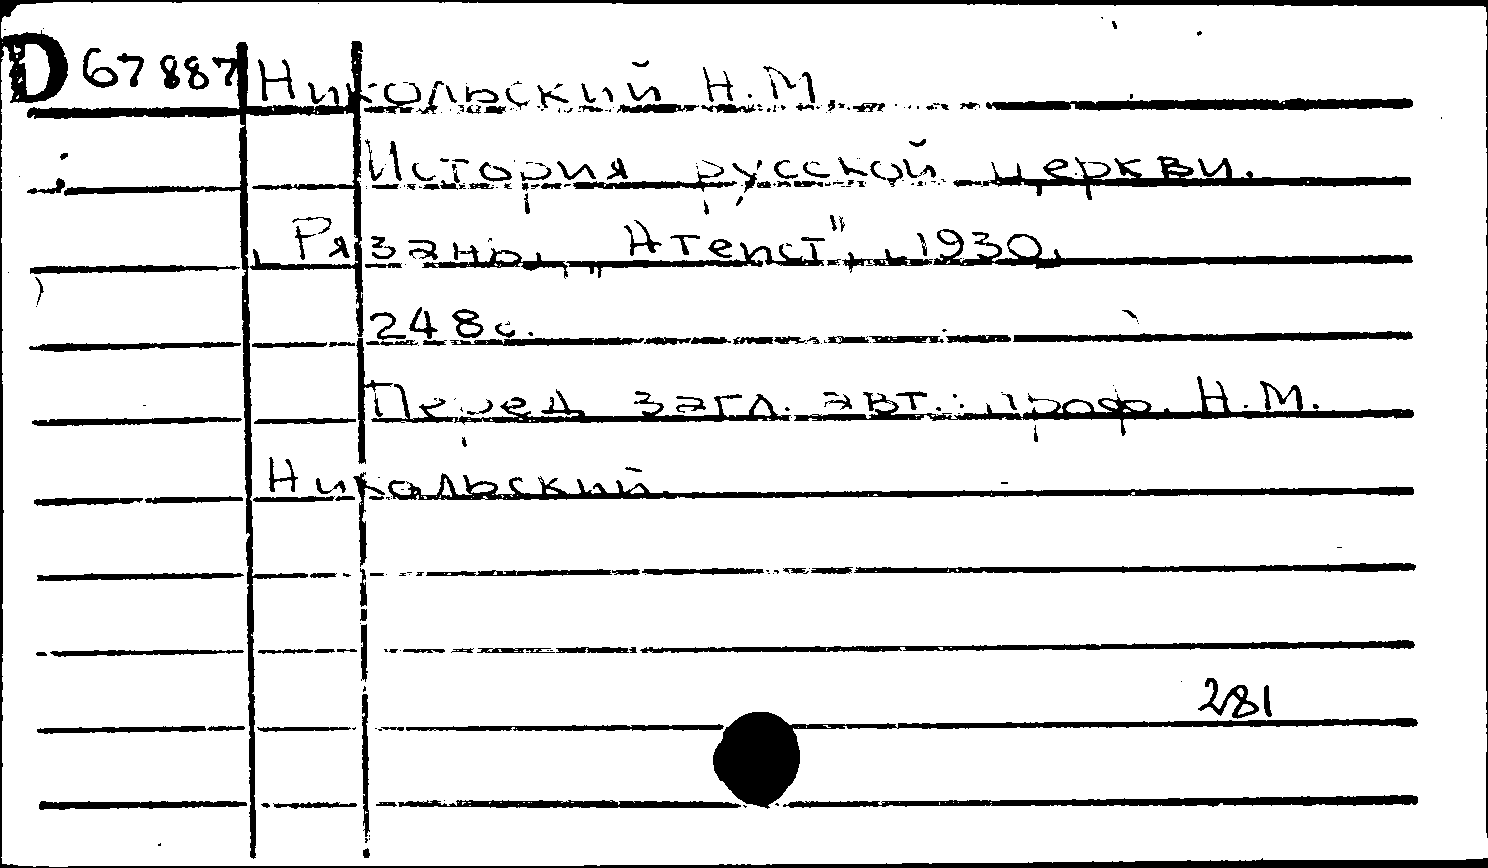 D 67887 Никольский Н.М.
История русской церкви.
Рязань, „Атеист", 1930.
248 с.
Перед загл. авт.: проф. Н.М.
Никольский.
281